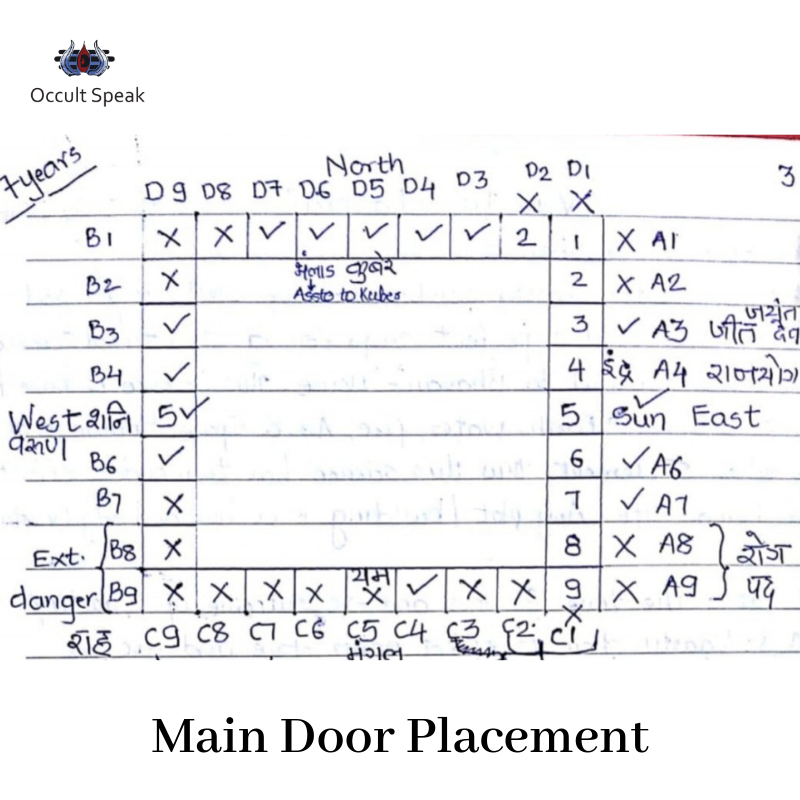 Occult Speak
7 years
North
3
D9 D8 D7 D6 D5 D4 D3 D2 D1
X X
B1 X X ✓ ✓ ✓ ✓ ✓ 2 1 X A1
B2 X कुबेर 2 X A2
Assto to Kuber
जयंत
B3 ✓ 3 ✓ A3 जीत देव
B4 ✓ 4 इंद्र A4 राजयोग
West शनि 5 ✓ 5 ✓ Sun East
वरुण
B6 ✓ 6 ✓ A6
B7 X 7 ✓ A7
Ext. B8 X 8 X A8 रोग
यम
danger B9 X X X X X ✓ X X 9 X A9 पद
X
राहु C9 C8 C7 C6 C5 C4 C3 C2 C1
मंगल
Main Door Placement